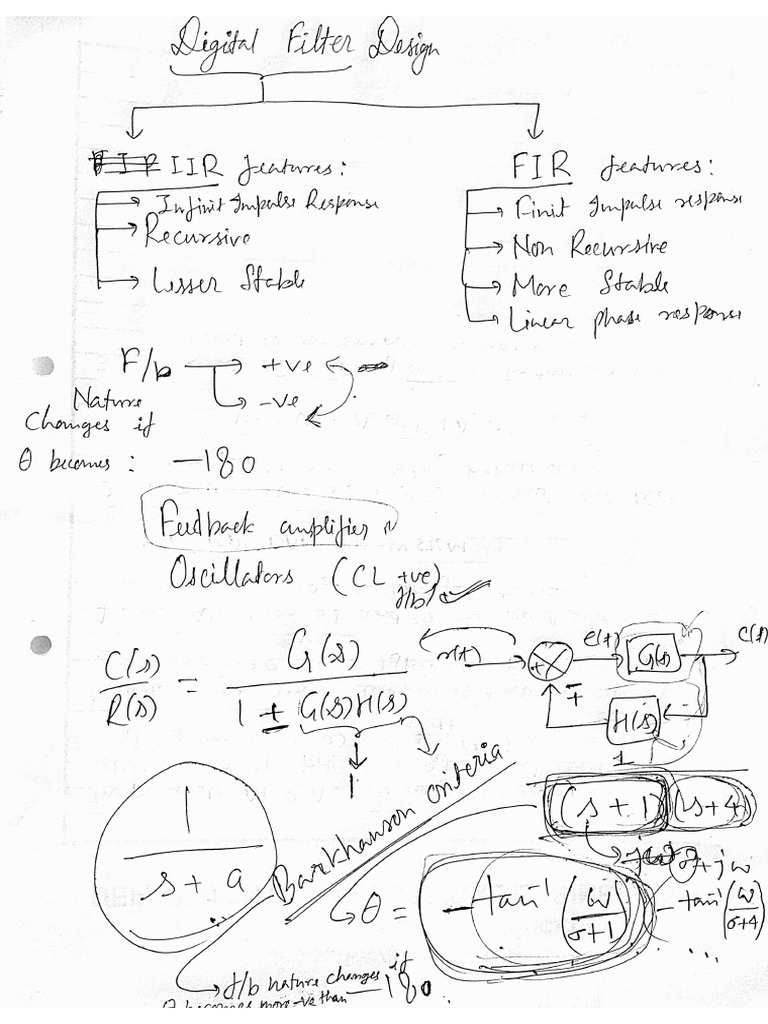 Digital Filter Design
IIR features:
Infinit Impulse Response
Recursive
Lesser Stable
FIR features:
Finit Impulse response
Non Recursive
More Stable
Linear phase response
F/b → +ve
→ -ve
Nature
Changes if
θ becomes: -180
Feedback amplifier
Oscillators (CL +ve
f/b)
C(s)/R(s) = G(s)/(1 ± G(s)H(s))
1
r(t)
+
∓
e(t)
G(s)
C(t)
H(s)
1/(s+a)
Barkhauson criteria
1
(s+1)(s+4)
σ+jω
θ = -tan⁻¹(ω/σ+1) -tan⁻¹(ω/σ+4)
...
f/b nature changes if
θ becomes more -ve than -180